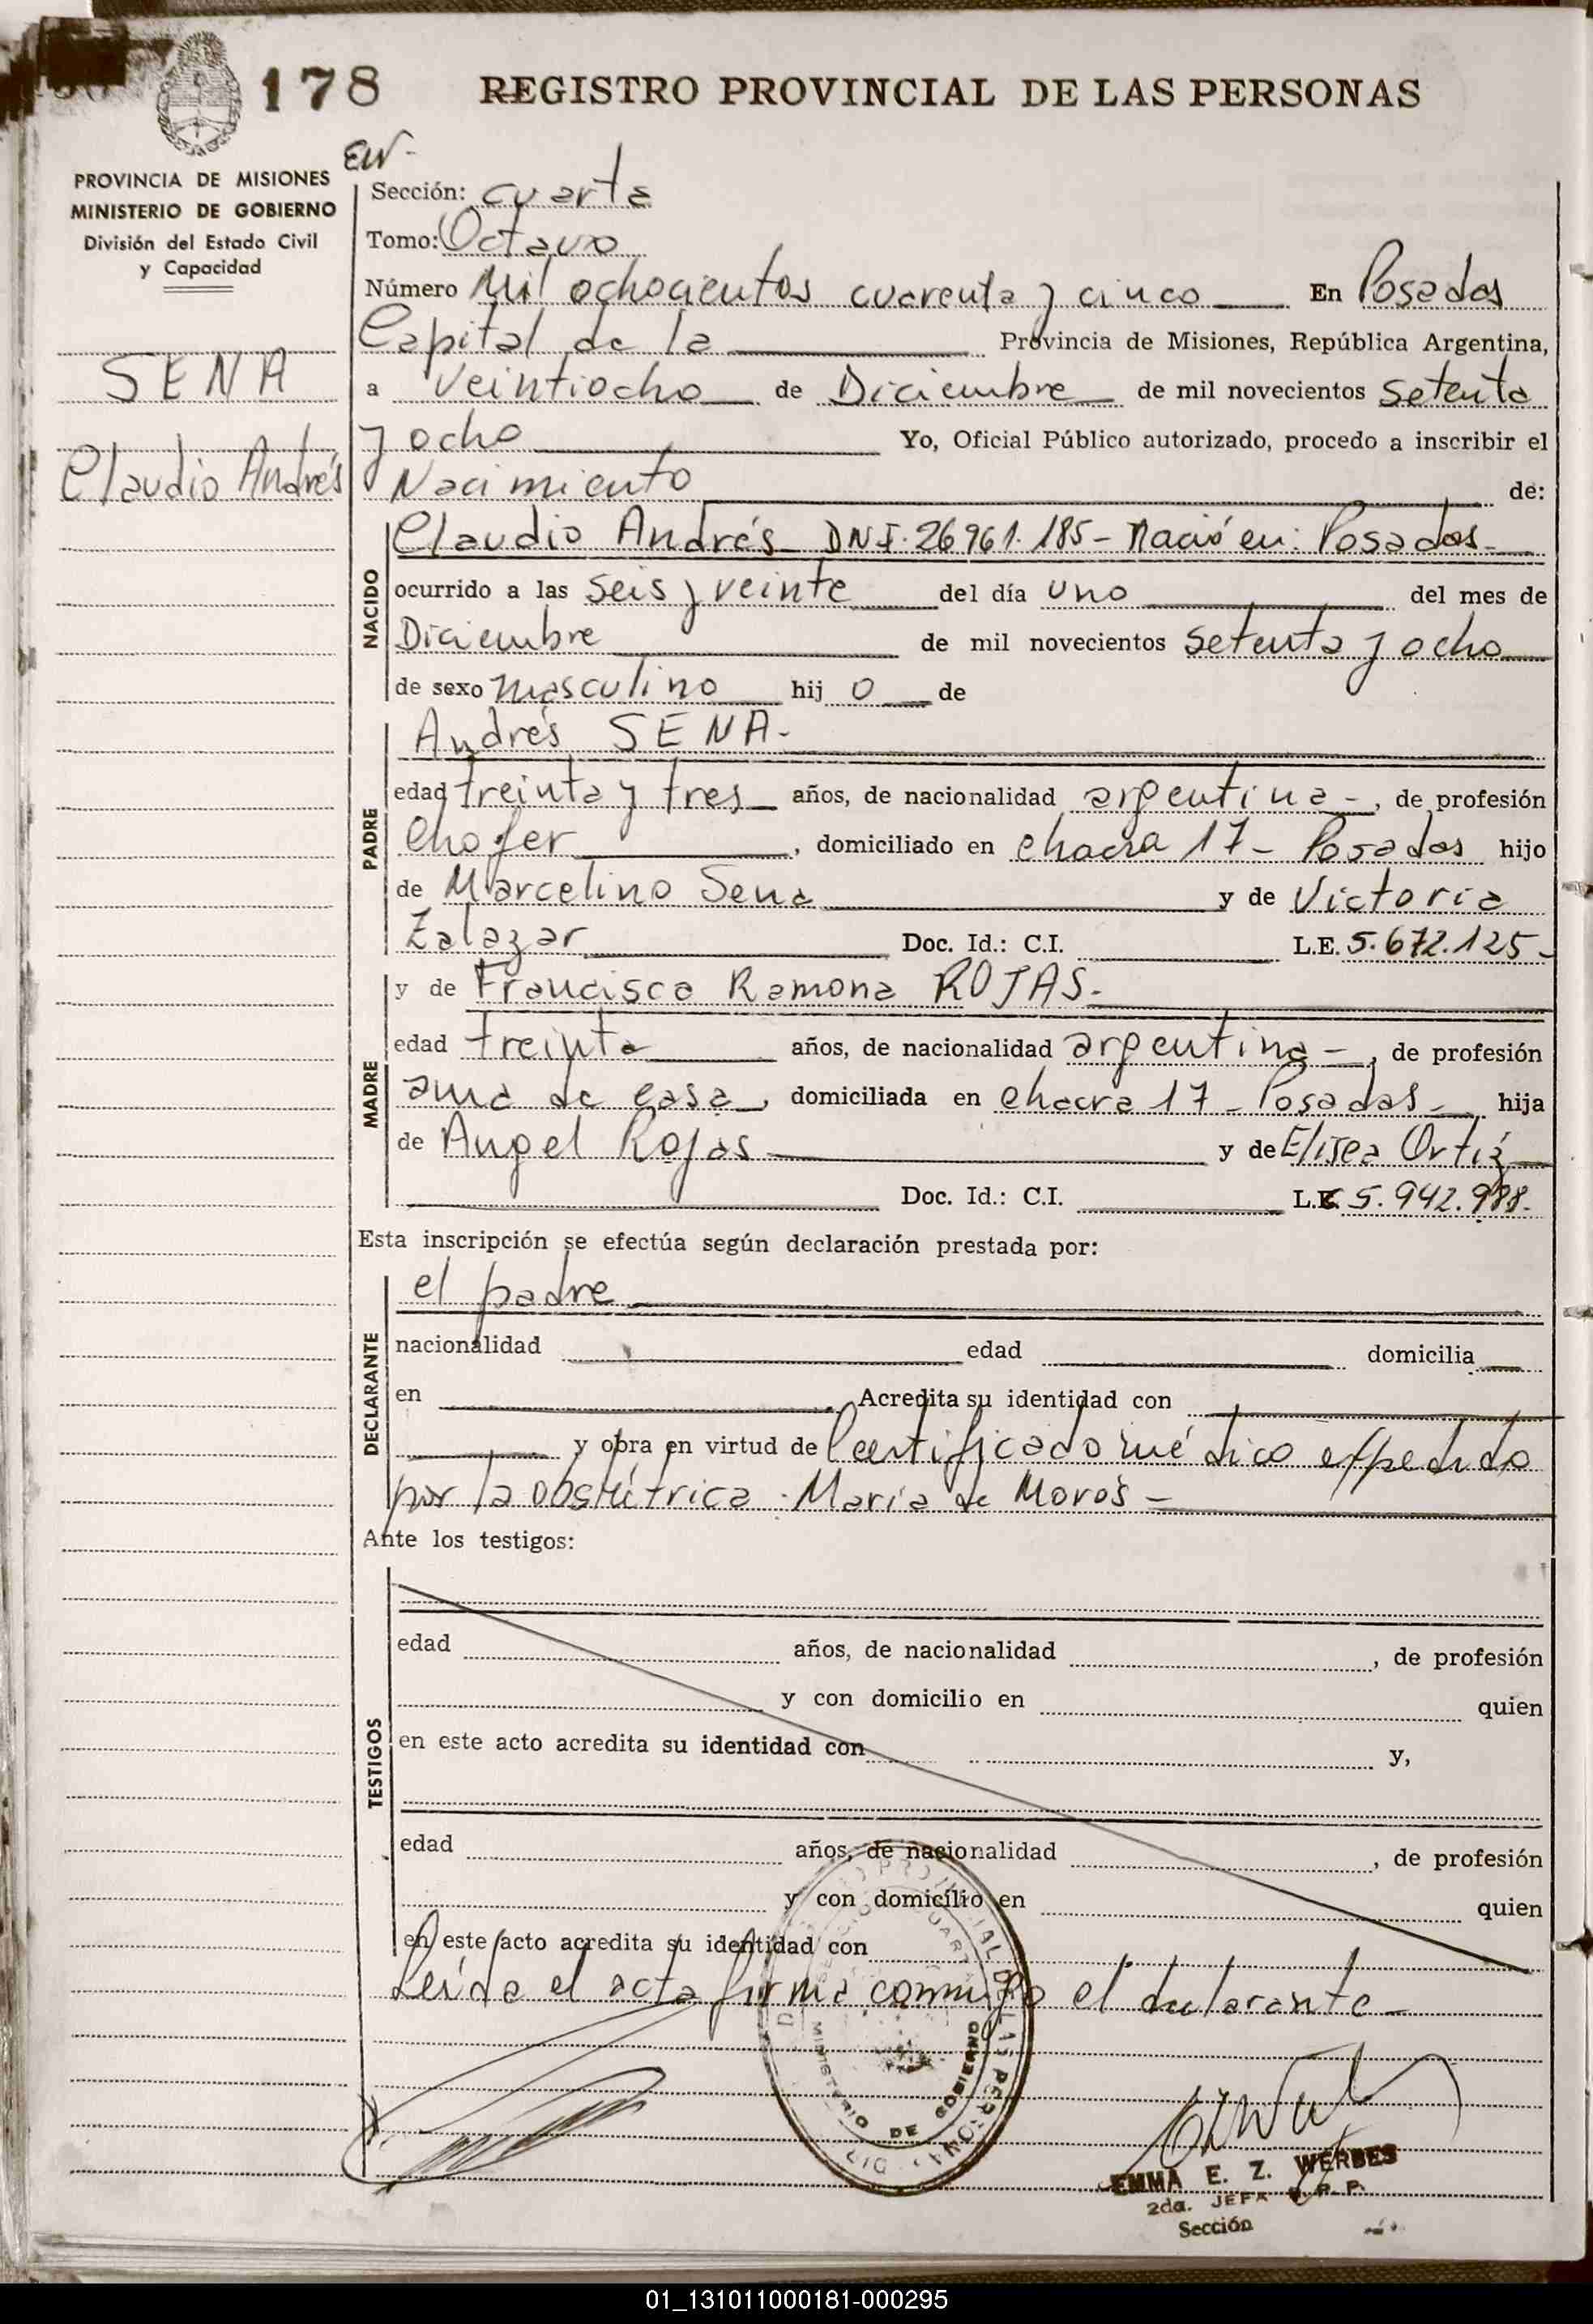 178 REGISTRO PROVINCIAL DE LAS PERSONAS
EW-
PROVINCIA DE MISIONES
MINISTERIO DE GOBIERNO
División del Estado Civil
y Capacidad
SENA
Claudio Andrés
Sección: cuarta
Tomo: Octavo
Número Mil ochocientos cuarenta y cinco En Posadas
Capital de la Provincia de Misiones, República Argentina,
a Veintiocho de Diciembre de mil novecientos setenta
y ocho Yo, Oficial Público autorizado, procedo a inscribir el
Nacimiento de:
NACIDO
Claudio Andrés DNI. 26961.185 - Nació en: Posadas -
ocurrido a las seis y veinte del día uno del mes de
Diciembre de mil novecientos setenta y ocho
de sexo masculino hij o de
PADRE
Andrés SENA -
edad treinta y tres años, de nacionalidad argentina -, de profesión
Chofer, domiciliado en chacra 17 - Posadas hijo
de Marcelino Sena y de Victoria
Zalazar Doc. Id.: C.I. L.E. 5.672.125 -
MADRE
y de Francisca Ramona ROJAS -
edad treinta años, de nacionalidad argentina -, de profesión
ama de casa, domiciliada en chacra 17 - Posadas - hija
de Angel Rojas y de Elisea Ortíz
Doc. Id.: C.I. L.C 5.942.988.
Esta inscripción se efectúa según declaración prestada por:
DECLARANTE
el padre
nacionalidad edad domicilia
en Acredita su identidad con
y obra en virtud de Certificado médico expedido
por la obstétrica María de Moros -
Ante los testigos:
TESTIGOS
edad años, de nacionalidad , de profesión
y con domicilio en quien
en este acto acredita su identidad con y,
edad años, de nacionalidad , de profesión
y con domicilio en quien
en este acto acredita su identidad con
Leída el acta firma conmigo el declarante -
MINISTERIO DE GOBIERNO
EMMA E. Z. WERBES
2da. JEFA R. P. P.
Sección
01_131011000181-000295